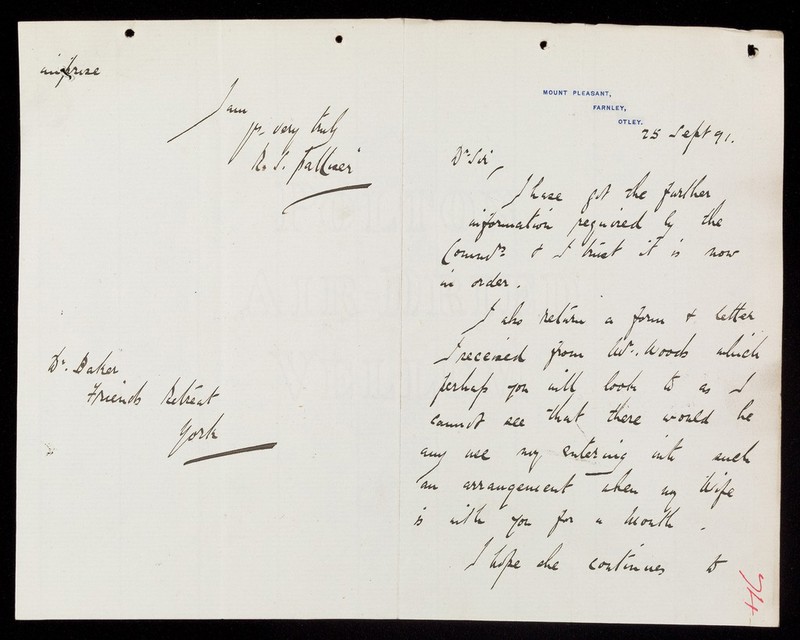 MOUNT PLEASANT,
FARNLEY,
OTLEY.
25 Sept 91.
Dr Sir,
I have got the further
information required by the
Commrs & I trust it is now
in order.
I also return a form & letter
I received from Mr. Woods which
perhaps you will look to as I
cannot see that there would be
any use my entering into such
an arrangement when my Wife
is with you for a Month.
I hope she continues to
improve
I am
yrs very truly
R. S. Palliser
Dr. Baker
Friends Retreat
York